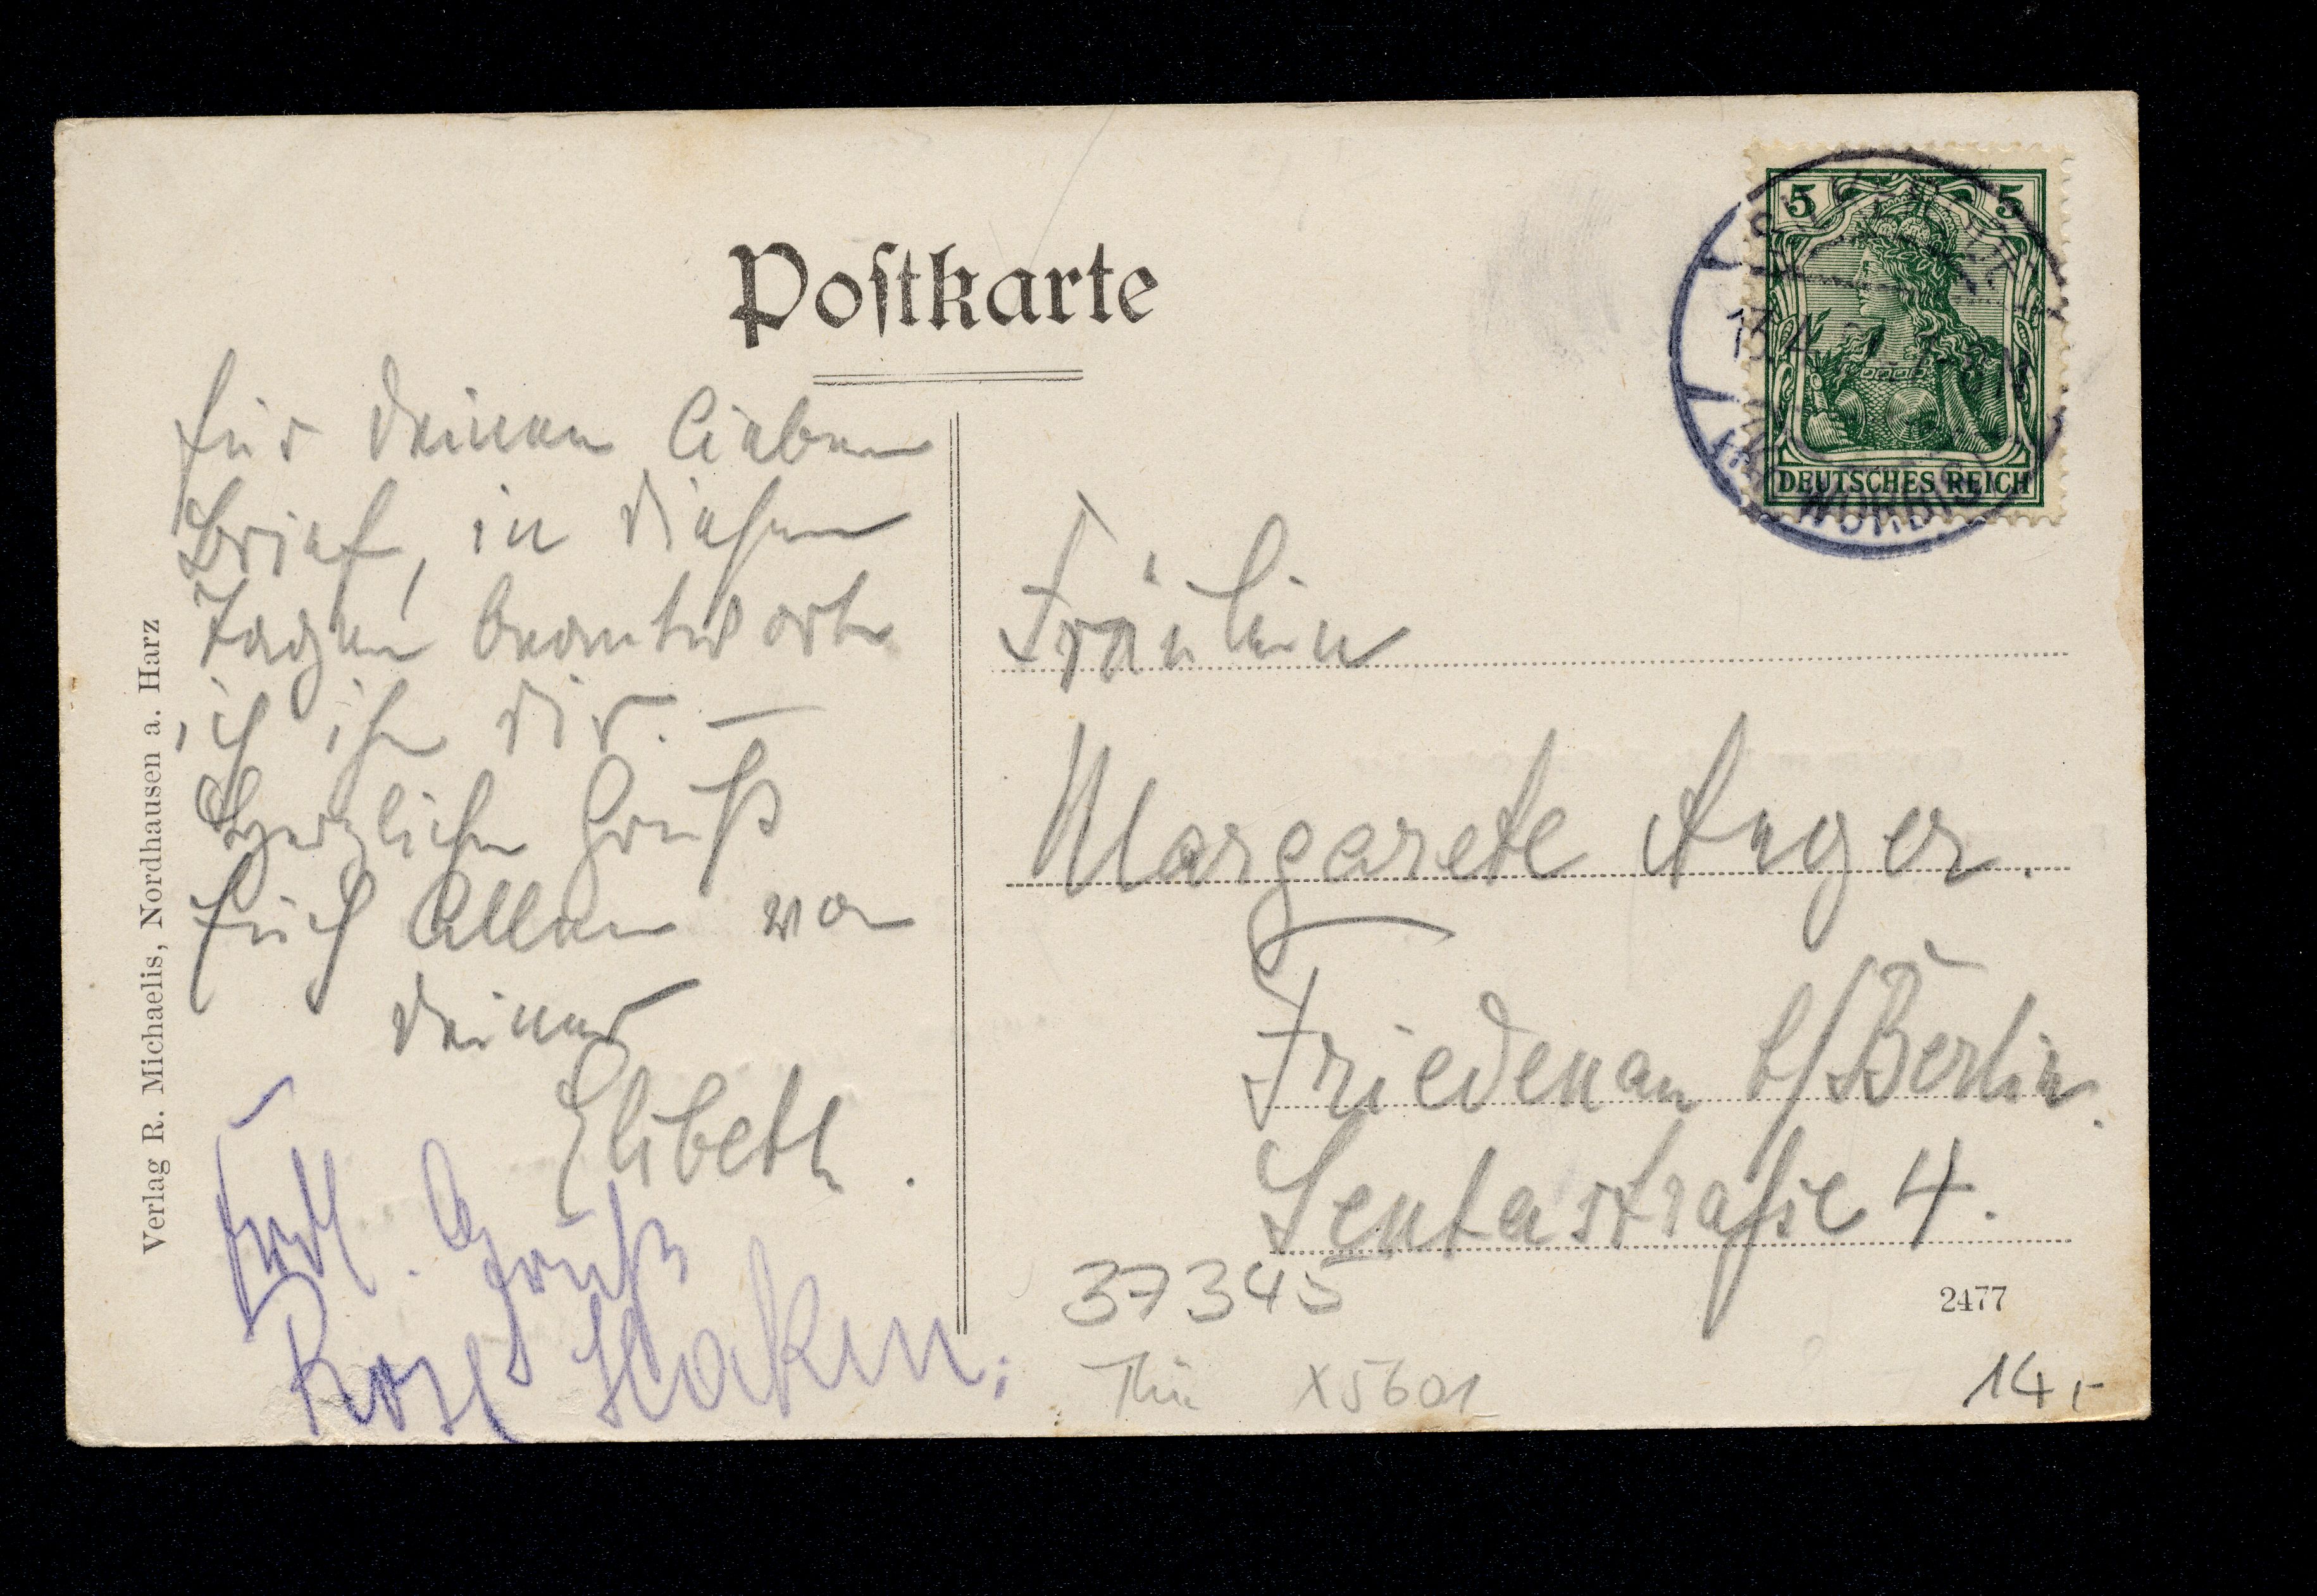 Postkarte
für deinen lieben
Brief, in diesen
Tagen beantworte
ich ihn dir. —
Herzlichen Gruß
Euch allen von
deiner
Elsbeth.
Herzl. Gruß
Rose Haken.
Verlag R. Michaelis, Nordhausen a. Harz
5 5
DEUTSCHES REICH
13.4.
WORBIS
Fräulein
Margarete Anger.
Friedenau b/Berlin.
Sentastraße 4.
37345
2477
Thü X5601
14,-